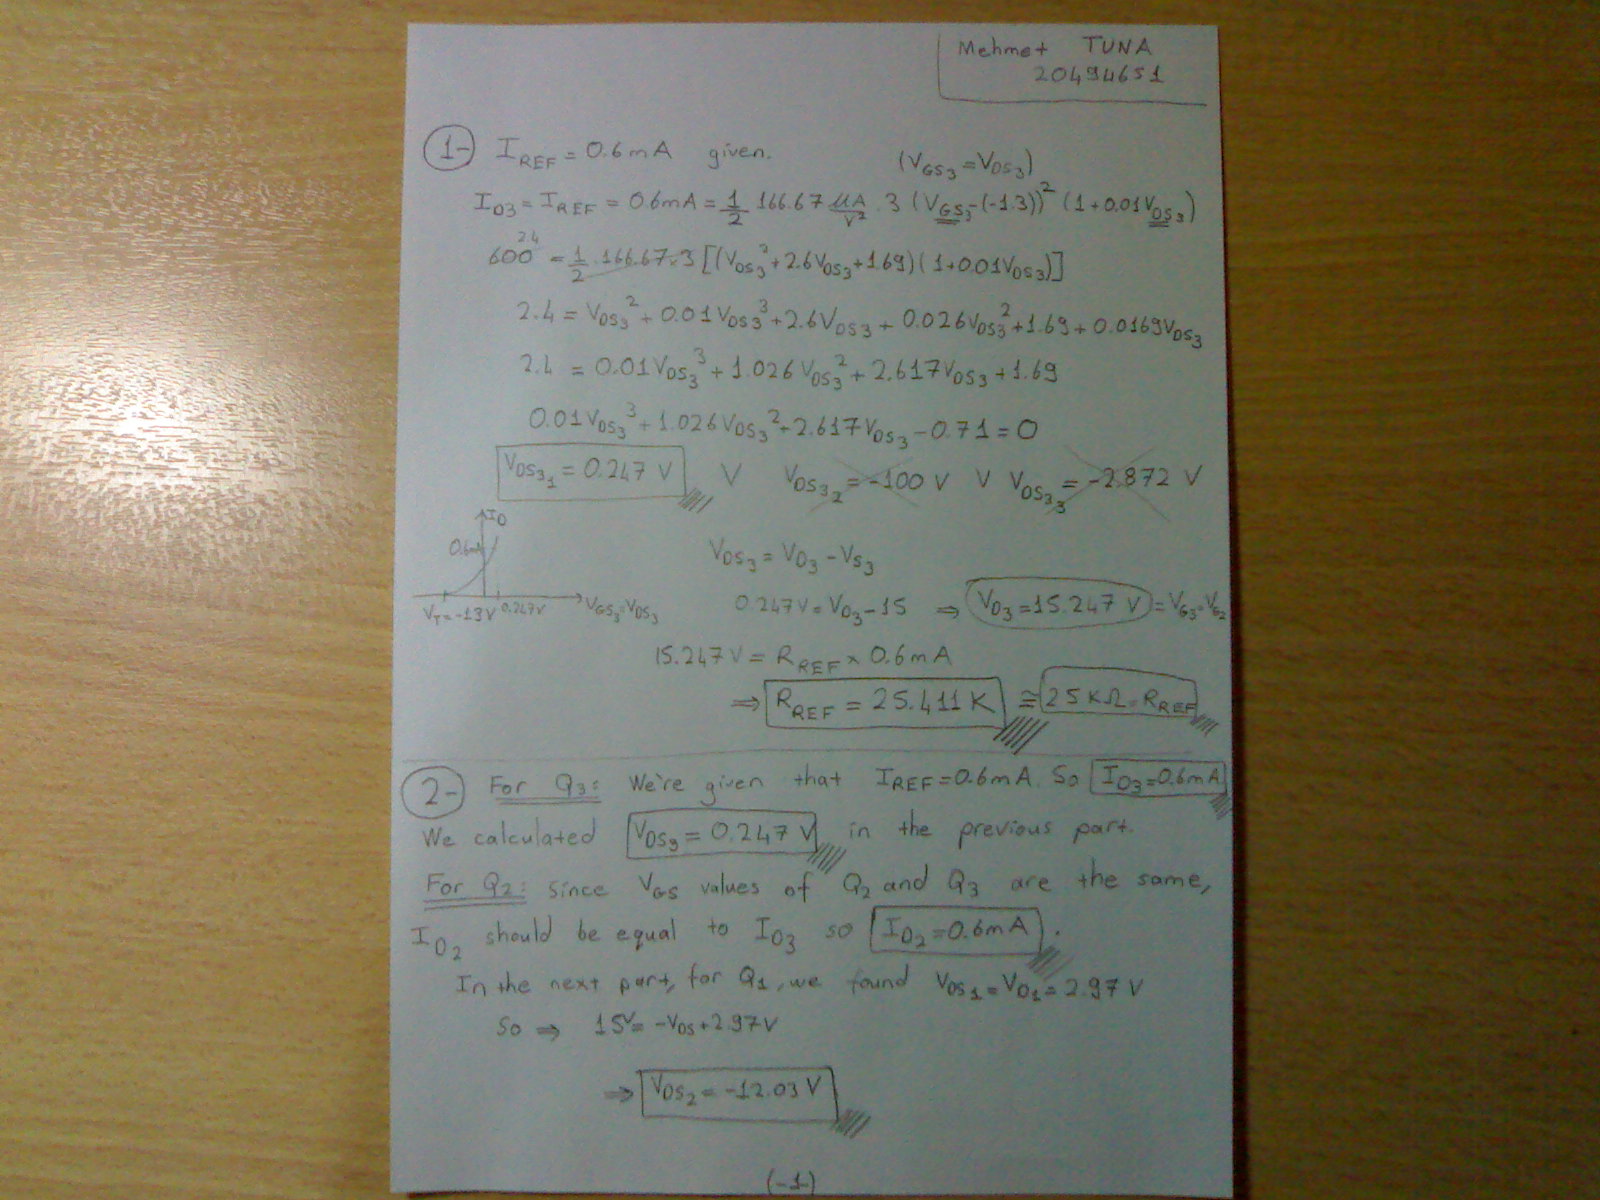 Mehmet TUNA
20494651
1- I_REF = 0.6mA given. (V_GS3 = V_DS3)
I_D3 = I_REF = 0.6mA = 1/2 166.67 μA/V² . 3 (V_GS3-(-1.3))² (1+0.01V_DS3)
600 2.4 = 1/2 .166.67x3 [(V_DS3²+2.6V_DS3+1.69)(1+0.01V_DS3)]
2.4 = V_DS3² + 0.01V_DS3³+2.6V_DS3 + 0.026V_DS3²+1.69+0.0169V_DS3
2.4 = 0.01V_DS3³ + 1.026 V_DS3² + 2.617V_DS3 + 1.69
0.01V_DS3³ + 1.026V_DS3² + 2.617V_DS3 - 0.71 = 0
V_DS3₁ = 0.247 V V V_DS3₂ = -100 V V V_DS3₃ = -2.872 V
I_D
0.6mA
V_T=-1.3V 0.247V V_GS3=V_DS3
V_DS3 = V_D3 - V_S3
0.247V = V_D3 - 15 ⇒ V_D3 = 15.247 V = V_G3 = V_G2
15.247 V = R_REF x 0.6mA
⇒ R_REF = 25.411 K ≅ 25 KΩ = R_REF
2- For Q3: We're given that I_REF=0.6mA. So I_D3=0.6mA
We calculated V_DS3 = 0.247 V in the previous part.
For Q2: Since V_GS values of Q2 and Q3 are the same,
I_D2 should be equal to I_D3 so I_D2=0.6mA.
In the next part, for Q1, we found V_DS1 = V_D1 = 2.97 V
So ⇒ 15V = -V_DS + 2.97V
⇒ V_DS2 = -12.03 V
(-1-)